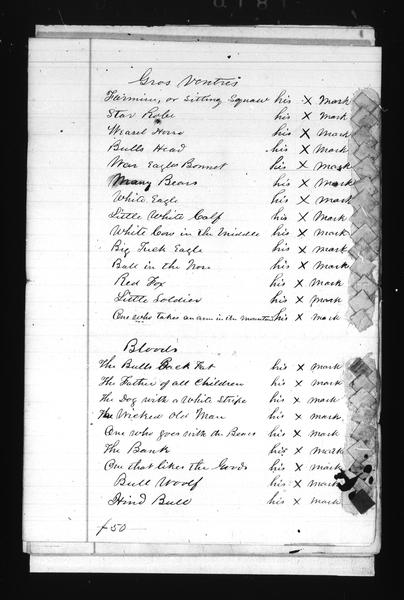 Gros Ventres
or Sitting Squaw his X mark
Star Robe his X mark
Weasel Horse his X mark
Bulls Head his X mark
War Eagles Bonnet his X mark
Many Bears his X mark
White Eagle his X mark
Little White Calf his X mark
White Cow in the Middle his X mark
Big Eagle his X mark
Ball in the Nose his X mark
Red Fox his X mark
Little Soldier his X mark
One who takes an arm in the mountain his X mark
Bloods
The Bulls Back Fat his X mark
The Father of all Children his X mark
The Dog with a White Stripe his X mark
The Wicked Old Man his X mark
One who goes with the Bears his X mark
The Bank his X mark
One that likes the Gods his X mark
Bull Woolf his X mark
Hind Bull his X mark
f 50